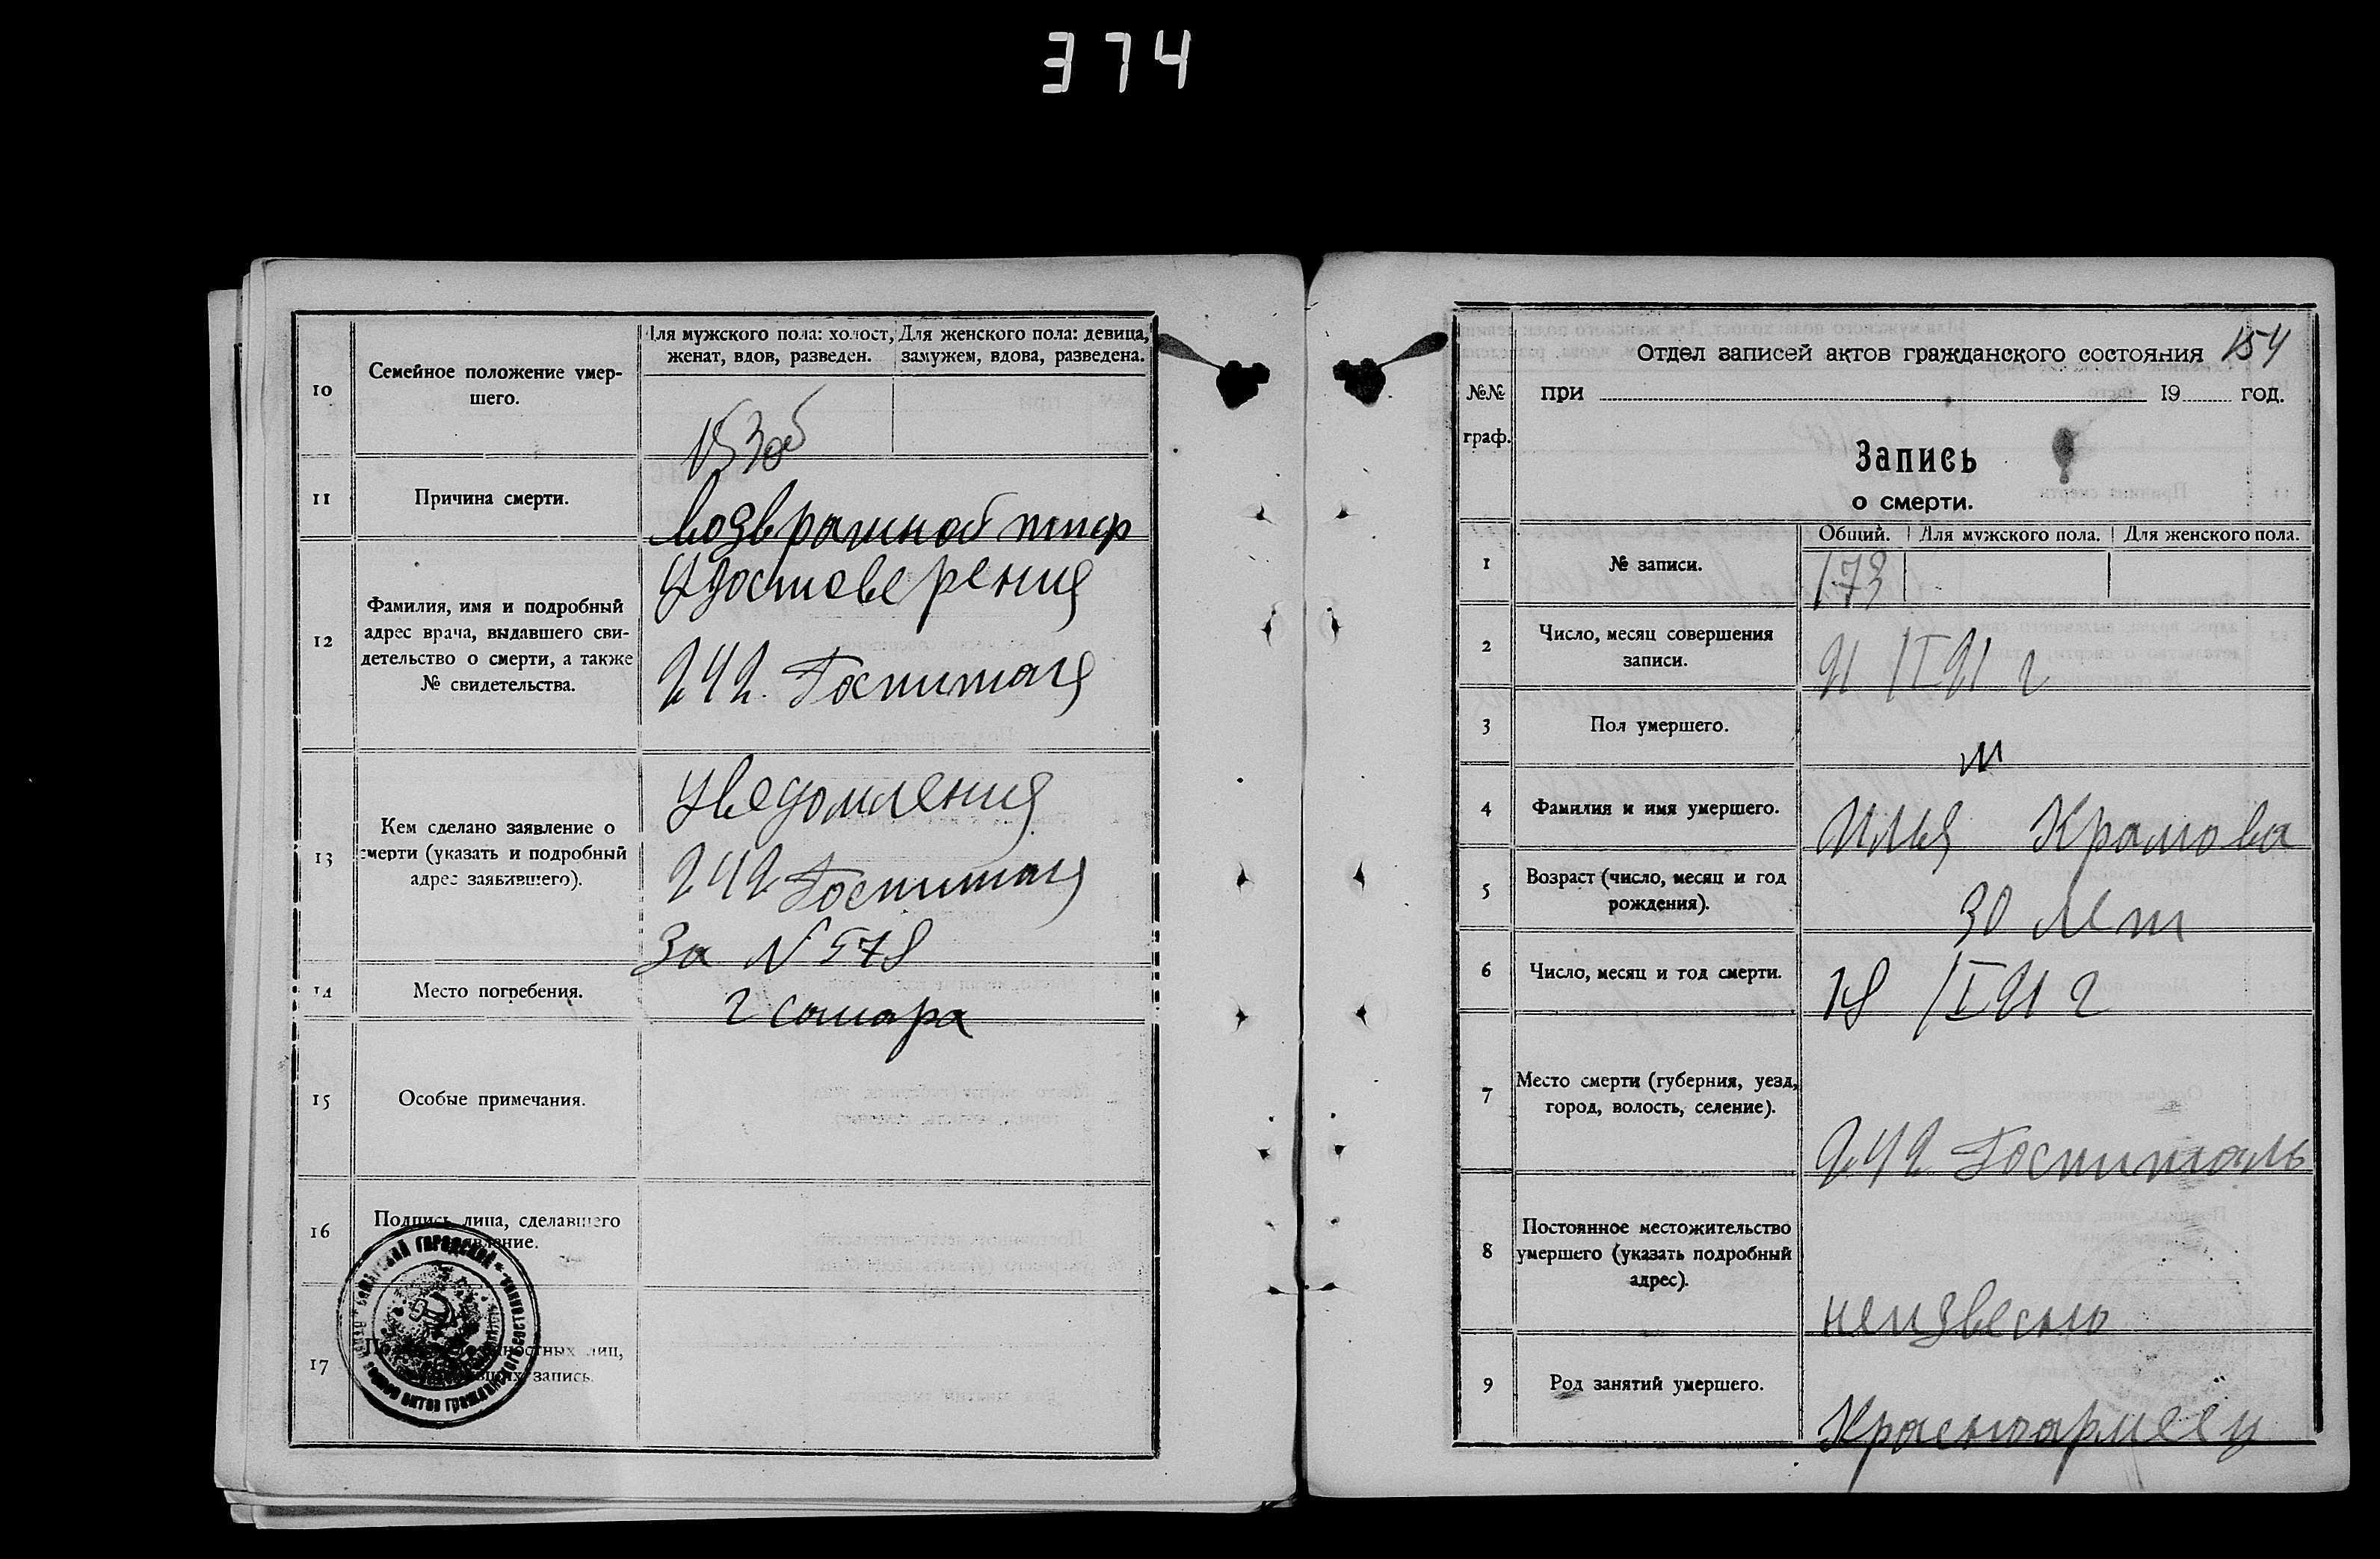 374
10
Семейное положение умер-
шего.
Для мужского пола: холост,
женат, вдов, разведен.
Для женского пола: девица,
замужем, вдова, разведена.
11
Причина смерти.
возвратной тиф
12
Фамилия, имя и подробный
адрес врача, выдавшего сви-
детельство о смерти, а также
№ свидетельства.
Удостоверения
242 Госпиталя
13
Кем сделано заявление о
смерти (указать и подробный
адрес заявившего).
Уведомления
242 Госпиталя
За N 578
14
Место погребения.
г самара
15
Особые примечания.
16
Подпись лица, сделавшего
заявление.
17
должностных лиц,
запись.
154
Отдел записей актов гражданского состояния
при 19 год.
№№
граф.
Запись
о смерти.
Общий. Для мужского пола. Для женского пола.
1
№ записи.
173
2
Число, месяц совершения
записи.
21 /I 21 г
3
Пол умершего.
м
4
Фамилия и имя умершего.
Илья
5
Возраст (число, месяц и год
рождения).
30 лет
6
Число, месяц и год смерти.
18 /I 21 г
7
Место смерти (губерния, уезд,
город, волость, селение).
242 Госпиталь
8
Постоянное местожительство
умершего (указать подробный
адрес).
неизвесно
9
Род занятий умершего.
Красноармеец